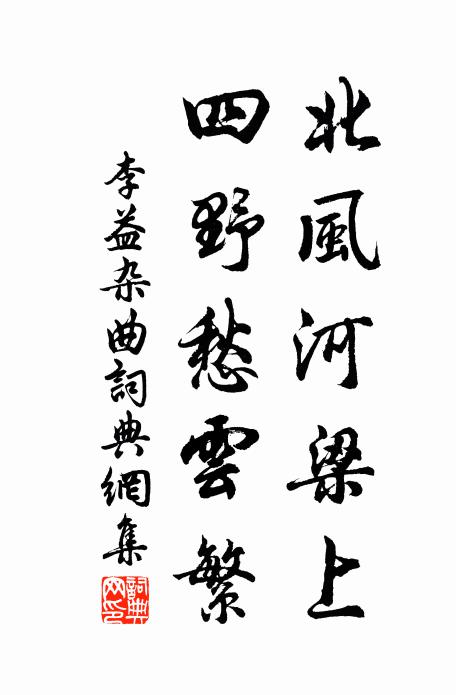 北風河梁上
四野愁雲繁
李益雜曲詞典網集
詞典網印